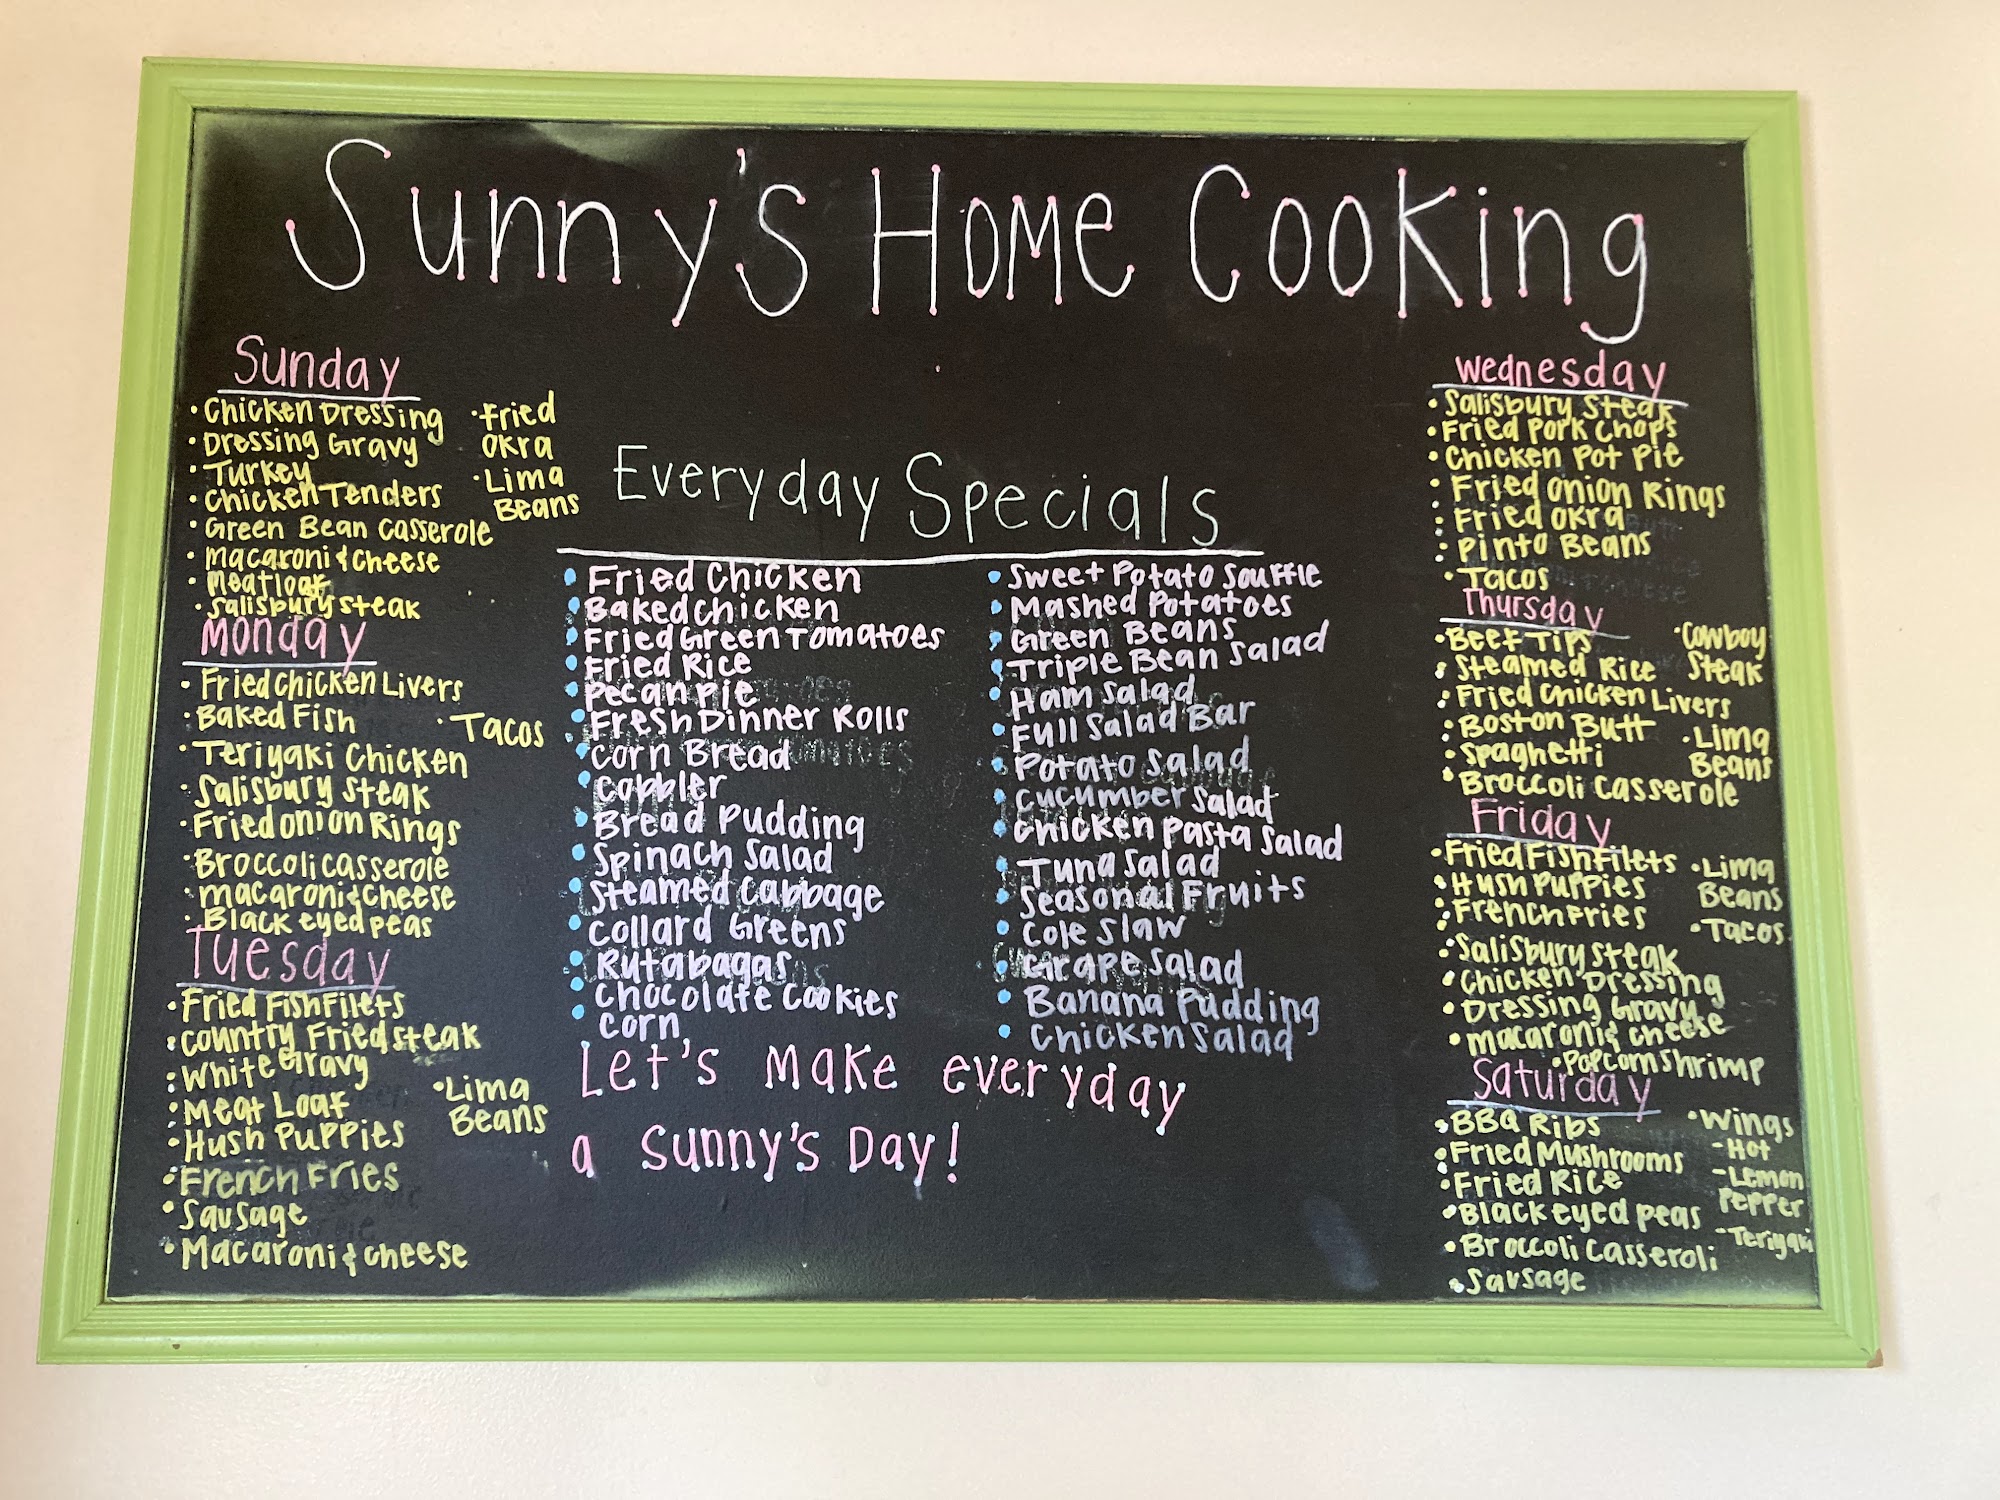 Sunny's Home Cooking
Sunday
• Chicken Dressing
• Dressing Gravy
• Turkey
• Chicken Tenders
• Green Bean Casserole
• Macaroni & Cheese
• Meatloaf
• Salisbury Steak
• Fried
Okra
• Lima
Beans
Monday
• Fried Chicken Livers
• Baked Fish
• Teriyaki Chicken
• Salisbury Steak
• Fried Onion Rings
• Broccoli Casserole
• Macaroni & Cheese
• Black eyed peas
• Tacos
Tuesday
• Fried Fish Filets
• Country Fried Steak
• White Gravy
• Meat Loaf
• Hush Puppies
• French Fries
• Sausage
• Macaroni & Cheese
• Lima
Beans
Everyday Specials
• Fried Chicken
• Baked Chicken
• Fried Green Tomatoes
• Fried Rice
• Pecan Pie
• Fresh Dinner Rolls
• Corn Bread
• Cobbler
• Bread Pudding
• Spinach Salad
• Steamed Cabbage
• Collard Greens
• Rutabagas
• Chocolate Cookies
• Corn
• Sweet Potato Souffle
• Mashed Potatoes
• Green Beans
• Triple Bean Salad
• Ham Salad
• Full Salad Bar
• Potato Salad
• Cucumber Salad
• Chicken Pasta Salad
• Tuna Salad
• Seasonal Fruits
• Cole Slaw
• Grape Salad
• Banana Pudding
• Chicken Salad
Let's make everyday
a Sunny's Day!
Wednesday
• Salisbury Steak
• Fried Pork Chops
• Chicken Pot Pie
• Fried Onion Rings
• Fried Okra
• Pinto Beans
• Tacos
Thursday
• Beef Tips
• Steamed Rice
• Fried Chicken Livers
• Boston Butt
• Spaghetti
• Broccoli Casserole
• Cowboy
Steak
• Lima
Beans
Friday
• Fried Fish Filets
• Hush Puppies
• French Fries
• Salisbury Steak
• Chicken Dressing
• Dressing Gravy
• Macaroni & Cheese
• Popcorn Shrimp
• Lima
Beans
• Tacos
Saturday
• BBQ Ribs
• Fried Mushrooms
• Fried Rice
• Black eyed peas
• Broccoli Casseroli
• Sausage
• Wings
- Hot
- Lemon
Pepper
- Teriyaki